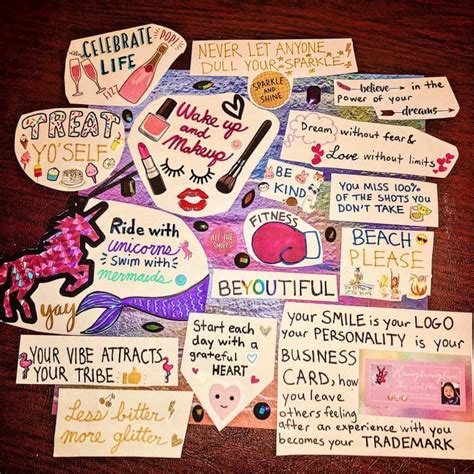 CELEBRATE
LIFE
POP!
NEVER LET ANYONE
DULL YOUR SPARKLE
SPARKLE
AND
SHINE
believe in the
power of your
dreams
TREAT
YO'SELF
Wake up
and
Makeup
Dream without fear &
Love without limits
BE
KIND
YOU MISS 100%
OF THE SHOTS YOU
DON'T TAKE
Ride with
unicorns
swim with
mermaids
yay
ALL THE
SMILES
FITNESS
BEACH
PLEASE
BEYOUTIFUL
YOUR VIBE ATTRACTS
YOUR TRIBE
Start each
day with a
grateful
HEART
your SMILE is your LOGO
your PERSONALITY is your
BUSINESS
CARD, how
you leave
others feeling
after an experience with you
becomes your TRADEMARK
Less bitter
more glitter